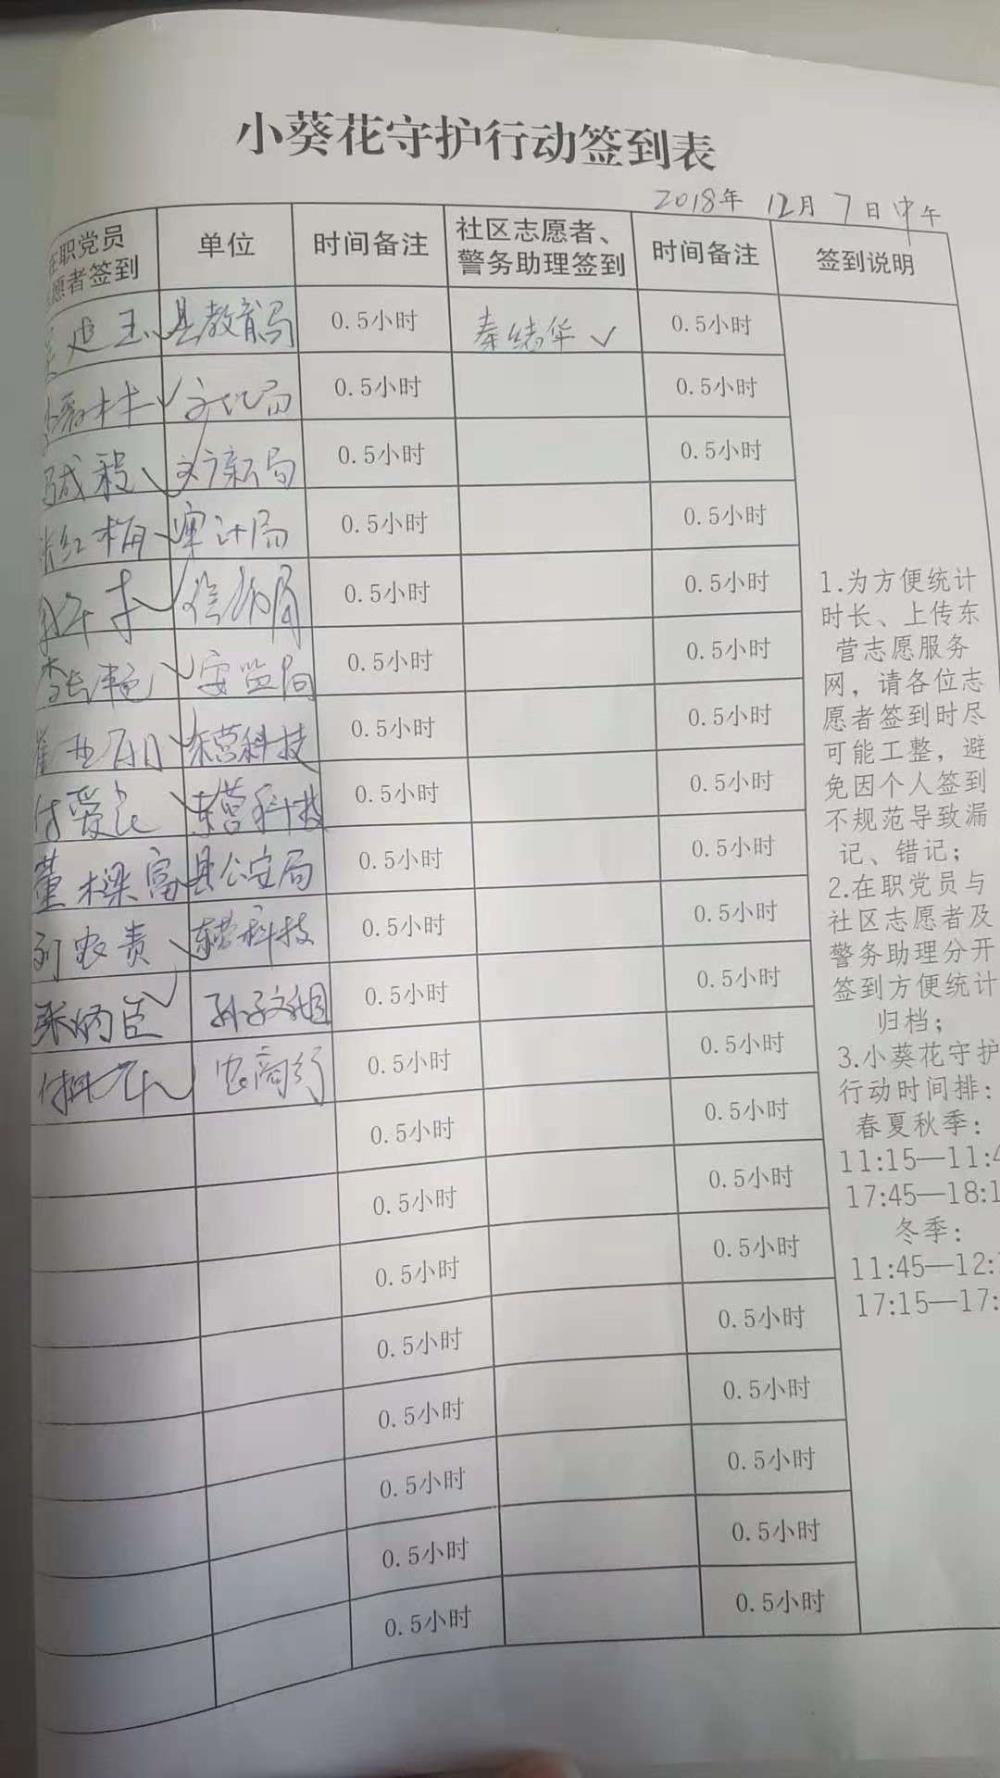 小葵花守护行动签到表
2018年 12月 7日中午
在职党员
愿者签到
单位
时间备注
社区志愿者、
警务助理签到
时间备注
签到说明
县教育局 0.5小时 秦绪华 ✓ 0.5小时
文化局 0.5小时 0.5小时
文广新局 0.5小时 0.5小时
红梅 审计局 0.5小时 0.5小时
信访局 0.5小时 0.5小时
安监局 0.5小时 0.5小时
东营科技 0.5小时 0.5小时
付爱民 东营科技 0.5小时 0.5小时
董樑富 县公安局 0.5小时 0.5小时
刘农贵 东营科技 0.5小时 0.5小时
张炳臣 孙子文旅 0.5小时 0.5小时
农商行 0.5小时 0.5小时
0.5小时 0.5小时
0.5小时 0.5小时
0.5小时 0.5小时
0.5小时 0.5小时
0.5小时 0.5小时
0.5小时 0.5小时
0.5小时 0.5小时
0.5小时 0.5小时
1.为方便统计
时长、上传东
营志愿服务
网，请各位志
愿者签到时尽
可能工整，避
免因个人签到
不规范导致漏
记、错记；
2.在职党员与
社区志愿者及
警务助理分开
签到方便统计
归档；
3.小葵花守护
行动时间排：
春夏秋季：
11:15—11:4
17:45—18:1
冬季：
11:45—12:
17:15—17: